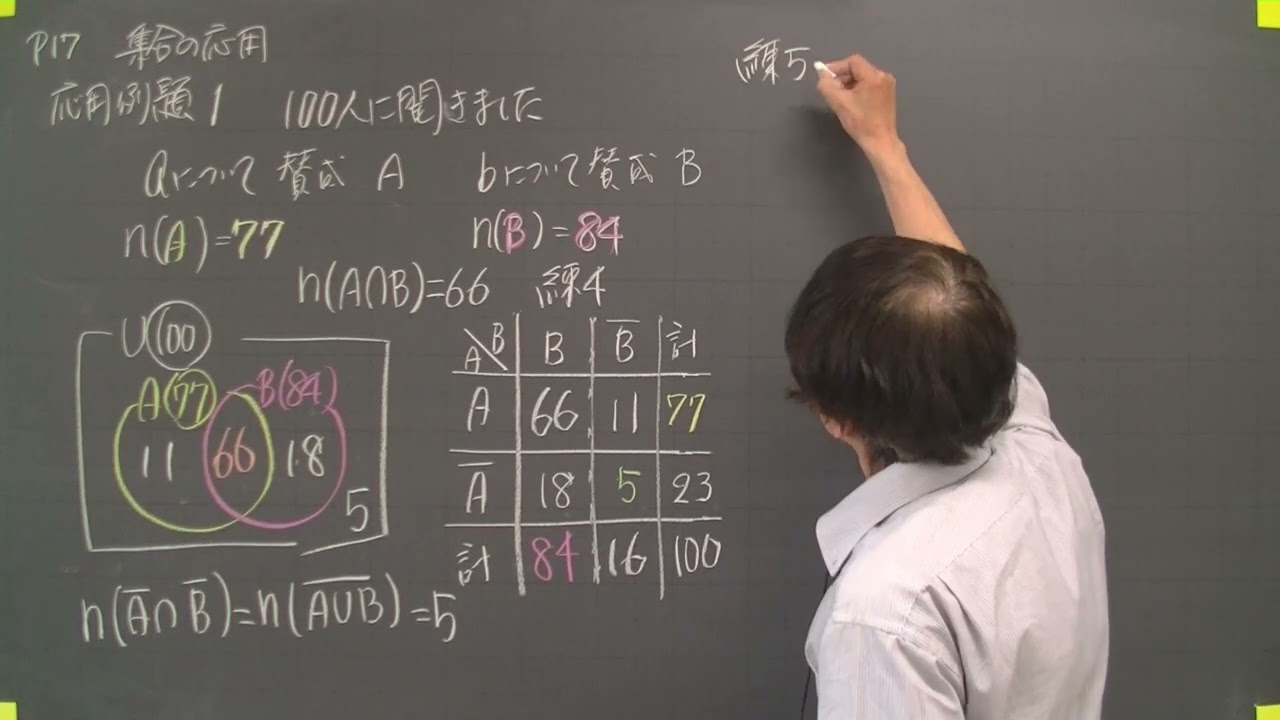 P17 集合の応用
応用例題1 100人に聞きました
aについて賛成 A bについて賛成 B
n(A)=77 n(B)=84
n(A∩B)=66 練4
U(100)
A(77) B(84)
11 66 18
5
A\B B B̅ 計
A 66 11 77
A̅ 18 5 23
計 84 16 100
n(A̅∩B̅)=n(A̅∪̅B̅)=5
練5